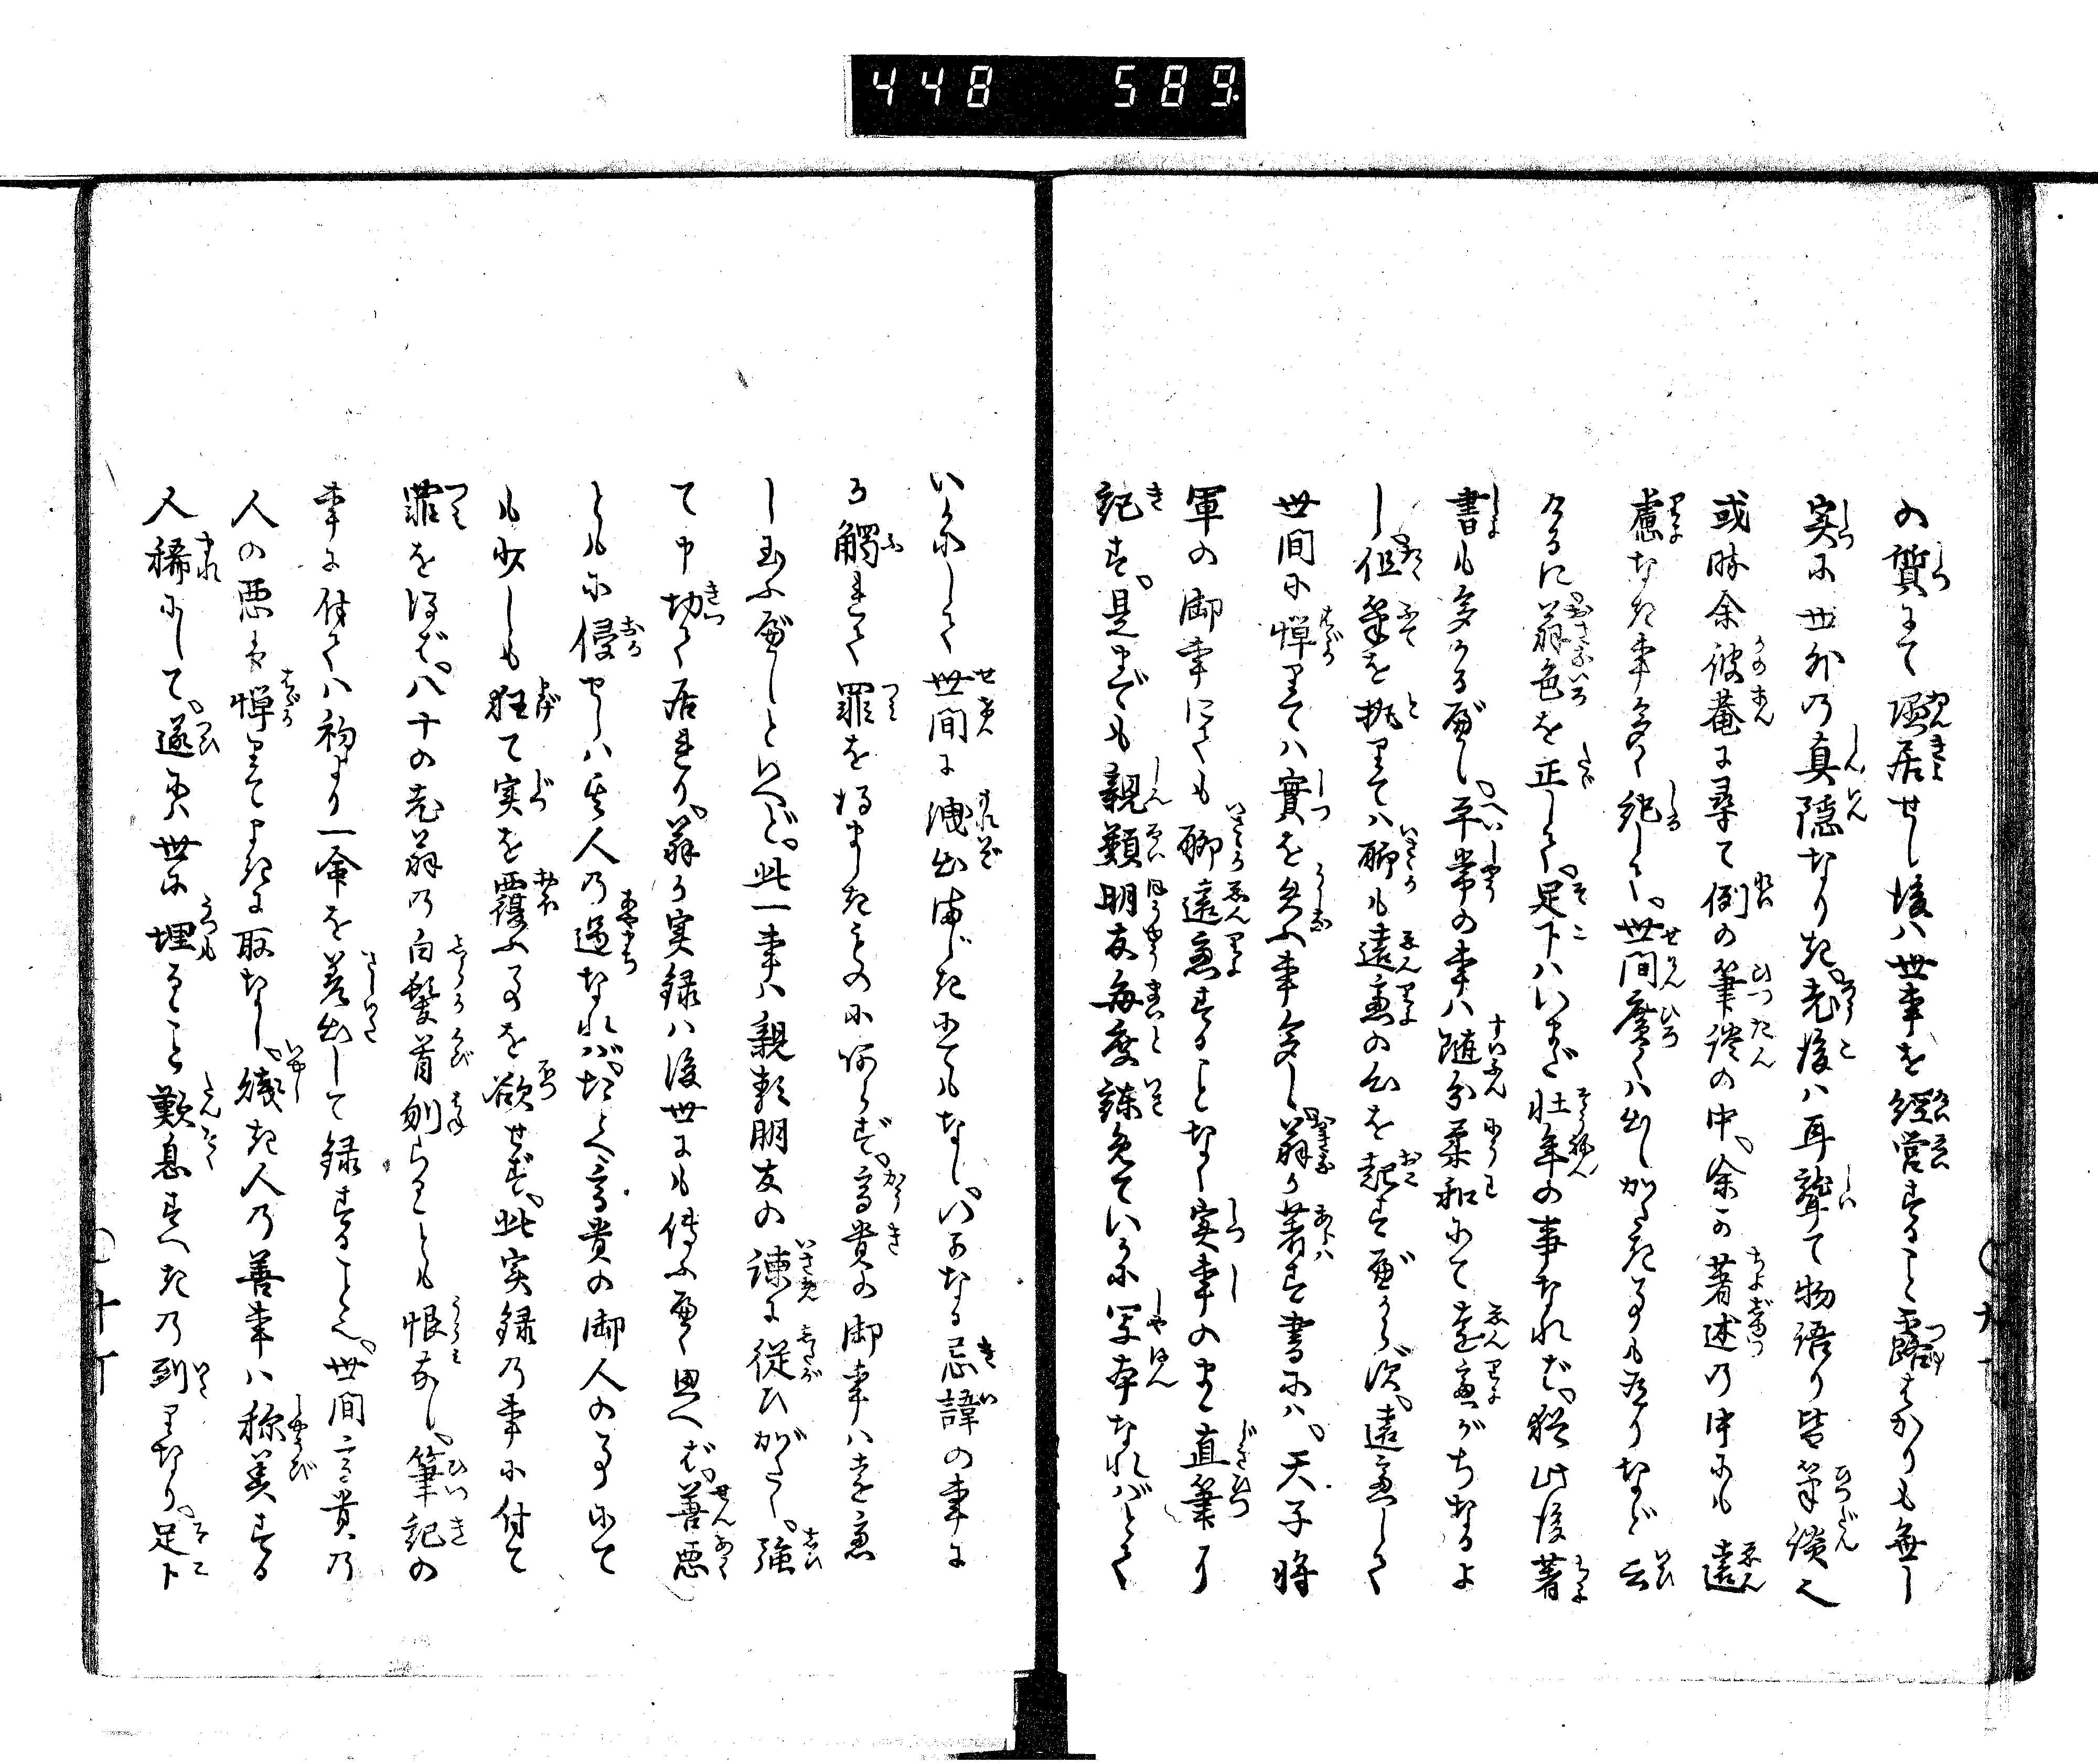 448 589.
の質にて隠居せし後ハ世事を経営することつゆ露ばかりも無し
実に世外の真隠なりき。老後ハ耳聾て物語り皆筆談也
或時余彼菴に尋て例の筆談の中。余が著述の中にも遠
慮なき事多く紀して。世間広くハ出しがたき事も有りなど云
けるに。翁色を正して。足下ハいまだ壮年の事なれば。猶此後著
書も多かるべし。平常の事ハ随分柔和にて遠慮がちなるよ
し但筆を執りてハ聊も遠慮の心を起すべからず。遠慮して
世間に憚りてハ實を失ふ事多し。翁が著す書にハ。天子将
軍の御事にても聊遠慮することなく実事のまゝ直筆に
記す。是までも親類朋友毎度諫めていかに写本なればとて
いかにして世間に洩出まじきにてもなし。いかなる忌諱の事に
か觸れて罪を得まじきものにあらず。高貴の御事ハ遠慮
し玉ふべしといへど。此一事ハ親類朋友の諫に従ひがたく。強
て申切て居れり。翁が実録ハ後世にも傳ふべく思へば。善悪
ともに侵せしハ其人の過なれば。たとへ高貴の御人の事にて
も少しも狂て実を覆ふ事を欲せず。此実録の事に付て
罪を得ば。八十の老翁の白髪首刎らるゝとも恨なし。筆記の
事に付てハ初より一命を差出して録することゝ也。世間高貴の
人の悪を憚りてよきに取なし。賤き人の善事ハ称美する
人稀にして。遂に世に埋るゝこと歎息すべきの到りなり。足下
十